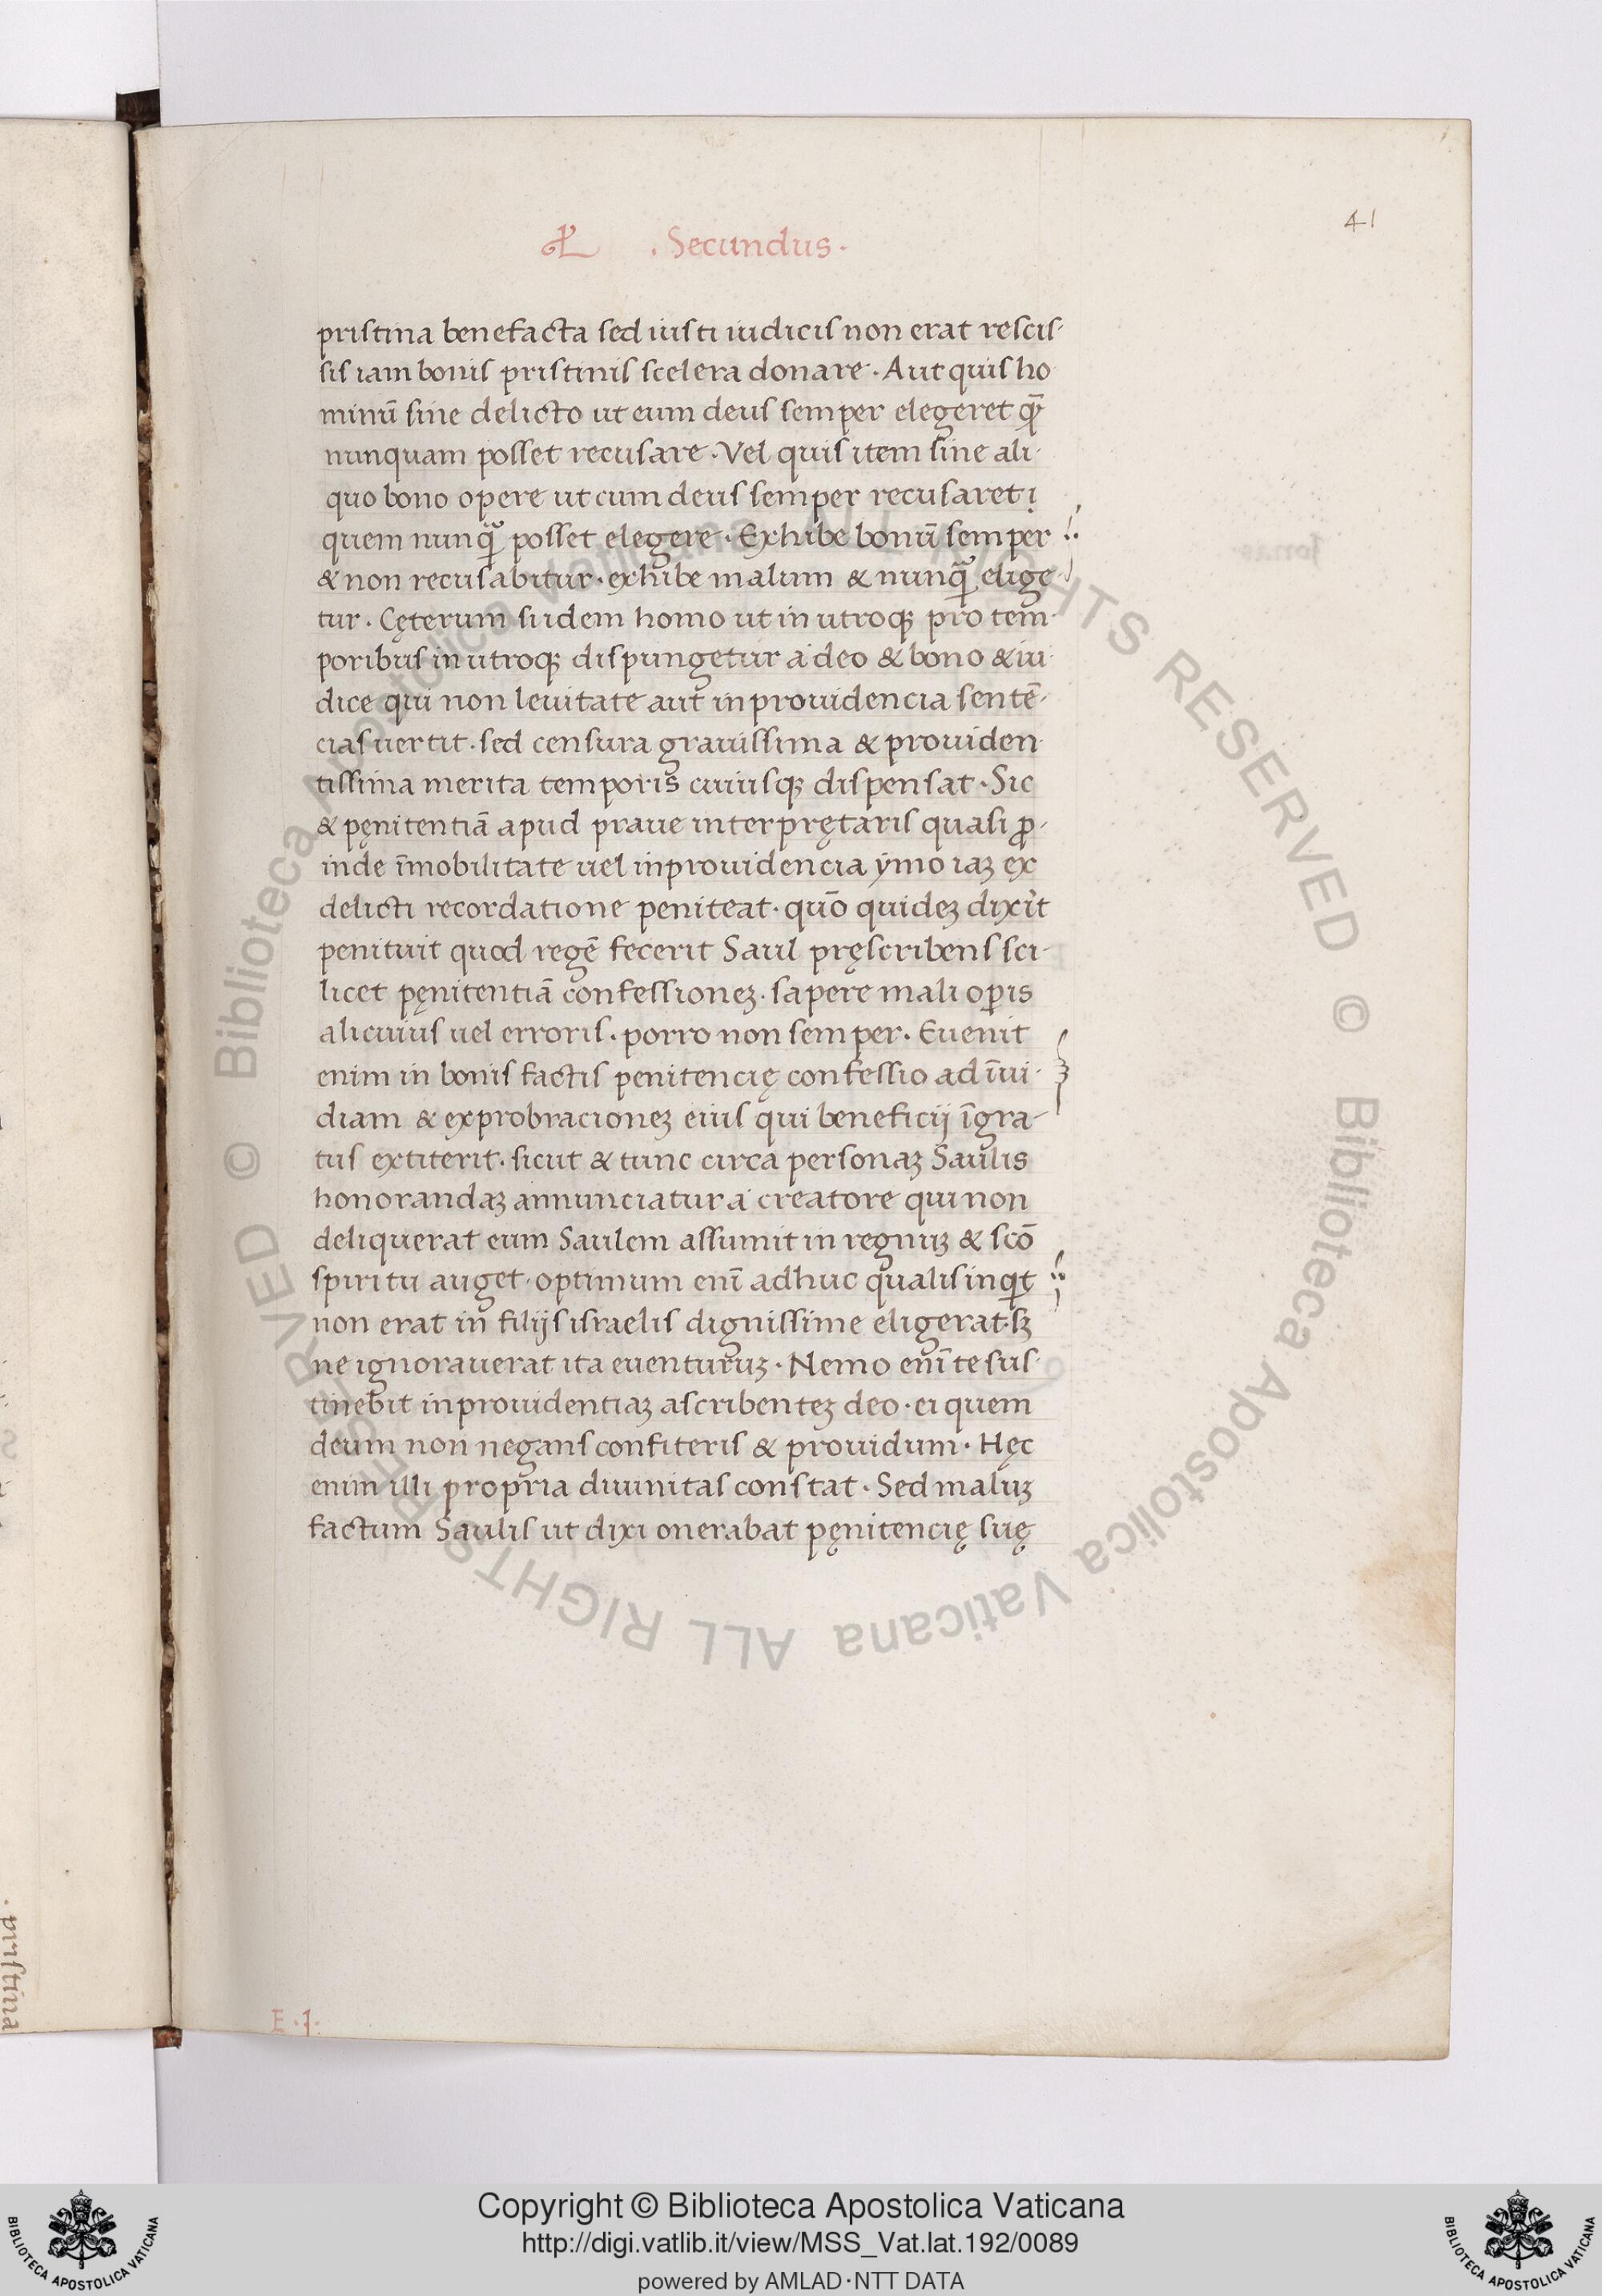 41
. Secundus .
pristina benefacta sed iusti iudicis non erat rescis-
sis iam bonis pristinis scelera donare . Aut quis ho
minū sine delicto ut eum deus semper elegeret quē
nunquam posset recusare . Vel quis item sine ali-
quo bono opere ut cum deus semper recusaret
quem nunqͣ posset elegere . Exhibe bonū semper
& non recusabitur . exhibe malum & nunqͣ elige-
tur . Cęterum si idem homo ut in utroqꝫ pro tem-
poribus in utroqꝫ dispungetur a deo & bono & iu-
dice qui non leuitate aut inprouidencia sentē-
cias uertit . sed censura grauissima & prouiden
tissima merita temporis cuiusqꝫ dispensat . Sic
& pęnitentiā apud praue interprętaris quasi ꝓ-
inde īmobilitate uel inprouidencia ẏmo iaꝫ ex
delicti recordatione peniteat . quō quideꝫ dixit
penituit quod regē fecerit Saul pręscribens sci-
licet pęnitentiā confessioneꝫ . sapere mali oꝑis
alicuius uel erroris . porro non semper . Euenit
enim in bonis factis penitencię confessio ad īui-
diam & exprobracioneꝫ eius qui beneficij īgra-
tus extiterit . sicut & tunc circa personaꝫ Saulis
honorandaꝫ annunciatur a creatore qui non
deliquerat eum Saulem assumit in regnuꝫ & scō
spiritu auget . optimum enī adhuc qualis inqͥt
non erat in filijs israelis dignissime eligerat . sꝫ
ne ignorauerat ita euenturuꝫ . Nemo enī te sus-
tinebit inprouidentiaꝫ ascribenteꝫ deo . ei quem
deum non negans confiteris & prouidum . Hęc
enim illi propria diuinitas constat . Sed maluꝫ
factum Saulis ut dixi onerabat pęnitencię suę
E . 1 .
. pristina
Copyright © Biblioteca Apostolica Vaticana
http://digi.vatlib.it/view/MSS_Vat.lat.192/0089
powered by AMLAD·NTT DATA
BIBLIOTECA APOSTOLICA VATICANA
BIBLIOTECA APOSTOLICA VATICANA
© Biblioteca Apostolica Vaticana ALL RIGHTS RESERVED © Biblioteca Apostolica Vaticana ALL RIGHTS RESERVED